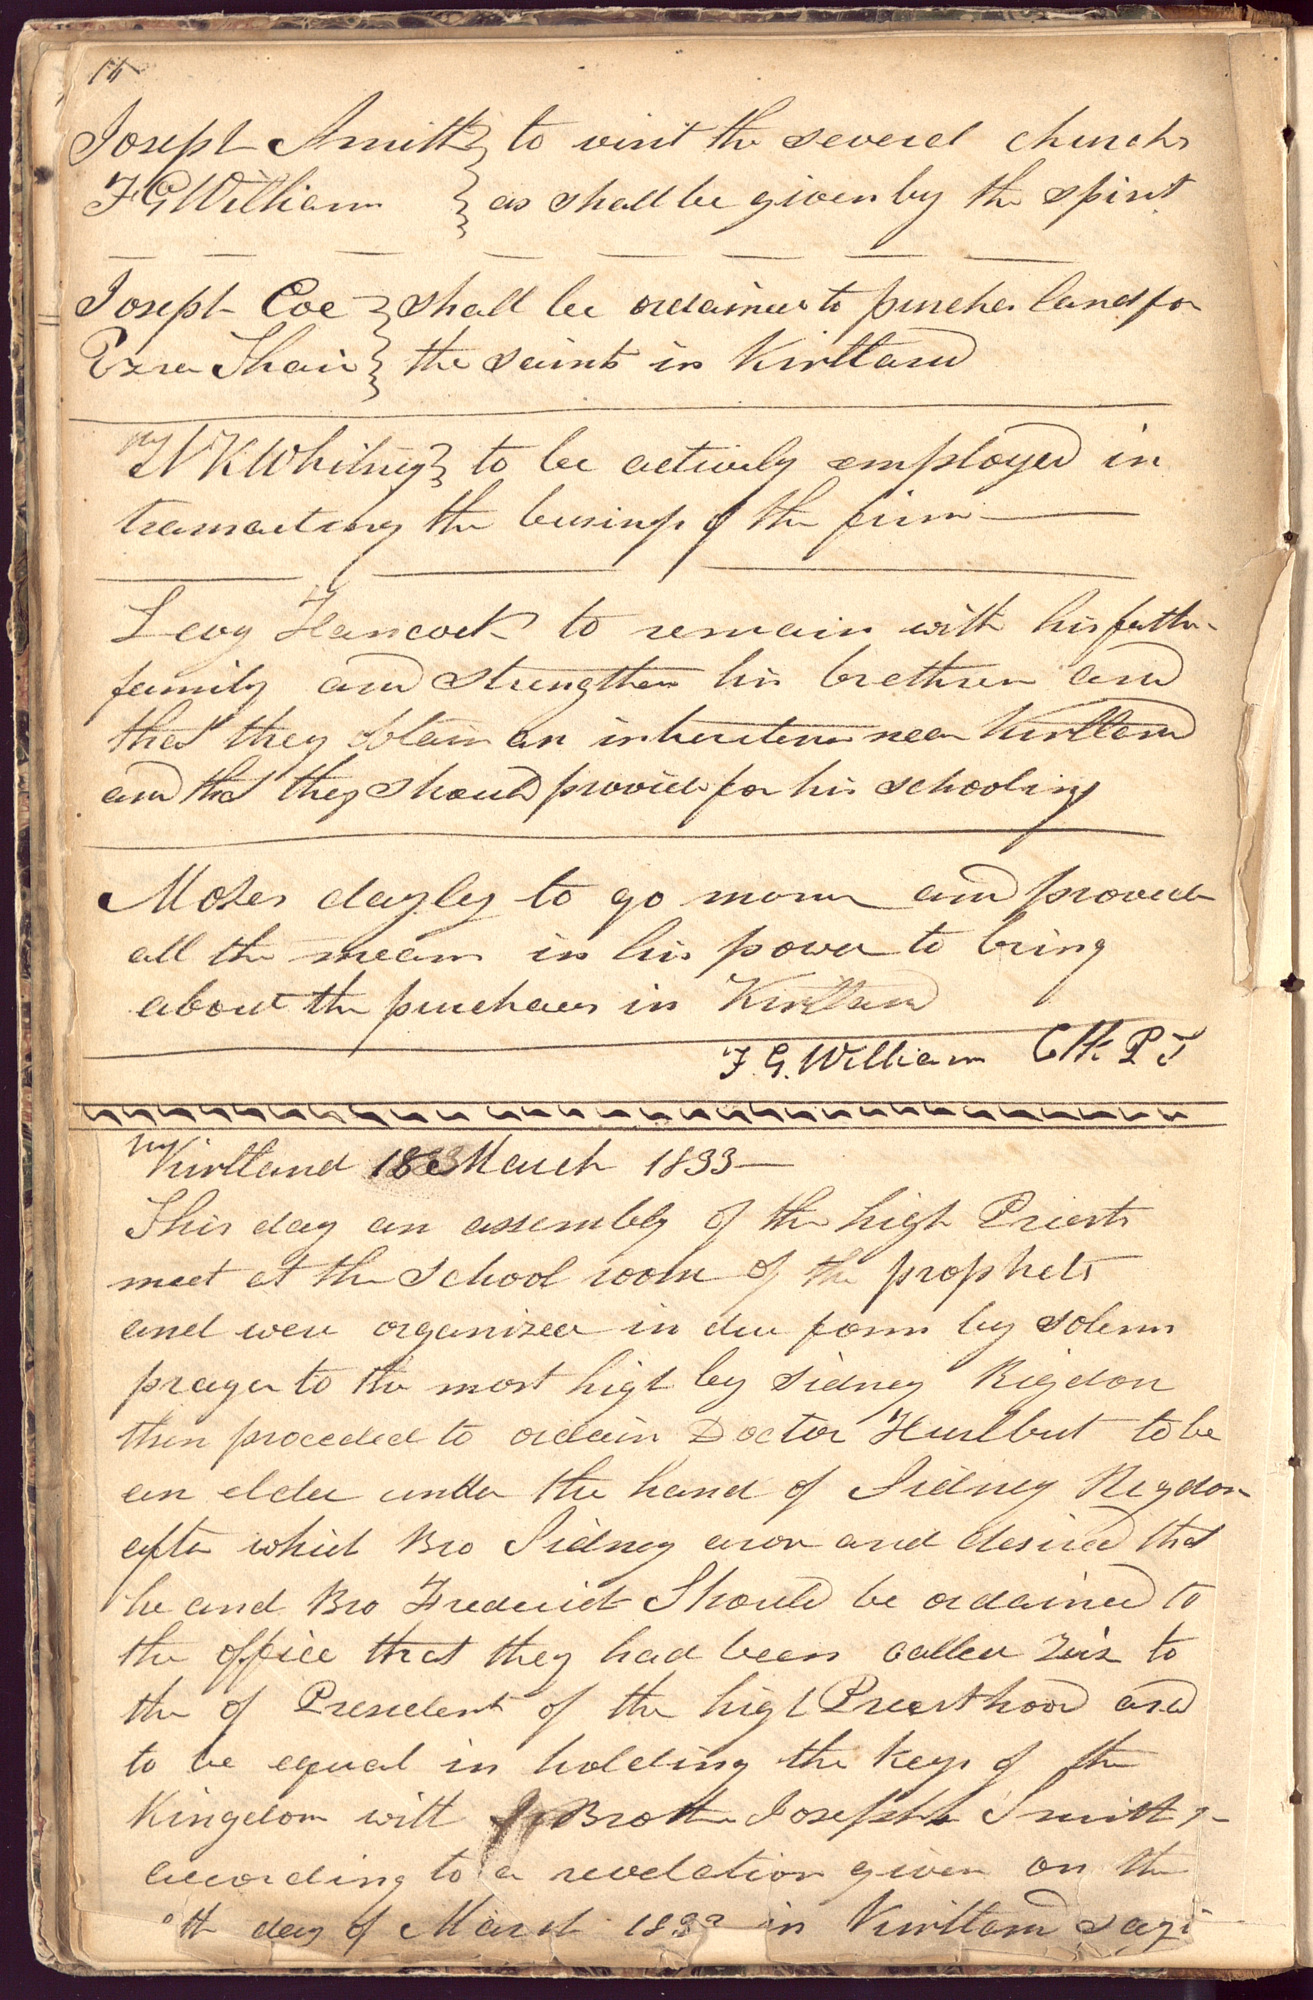 16
Joseph Smith } to visit the several churchs
F G William } as shall be given by the spirit
Joseph Coe } shall be ordained to purches land for
Ezra Thair } the saints in Kirtland
N K Whitney } to be actively employed in
transacting the business of the firm
Levy Hancock to remain with his father
family and strengthen his brethren and
that they obtain an inheritence near Kirtland
and that they should provide for his schooling
Moses dayley to goморе and provide
all the means in his power to bring
about the purchaes in Kirtland
F. G. William Clk. P T
Kirtland 18 March 1833
This day an assembly of the high Priests
meet at the School room of the prophets
and were organized in due form by solemn
prayer to the most high by Sidney Rigdon
then proceded to ordain Doctor Hurlbut to be
an elder under the hand of Sidney Rigdon
after which Bro Sidney arose and desired that
he and Bro Frederick Should be ordained to
the office that they had been called Viz to
the of President of the high Priesthood and
to be equal in holding the Keys of the
Kingdom with Brother Joseph Smith Jr
according to a revelation given on the
8th day of March 1833 in Kirtland sayi